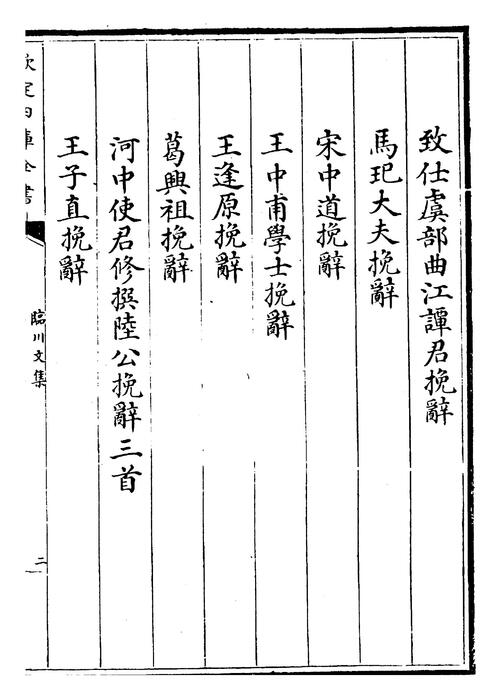 致仕虞部曲江譚君挽辭
馬玘大夫挽辭
宋中道挽辭
王中甫學士挽辭
王逢原挽辭
葛興祖挽辭
河中使君修撰陸公挽辭三首
王子直挽辭
欽定四庫全書
臨川文集
二